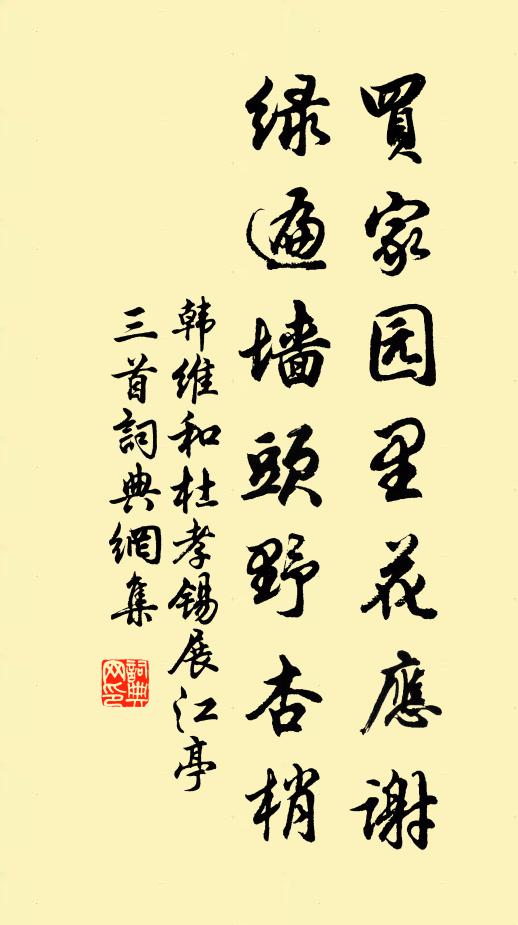 買家园里花應谢
绿遍墙頭野杏梢
韩维和杜孝锡展江亭
三首詞典網集
詞典网印